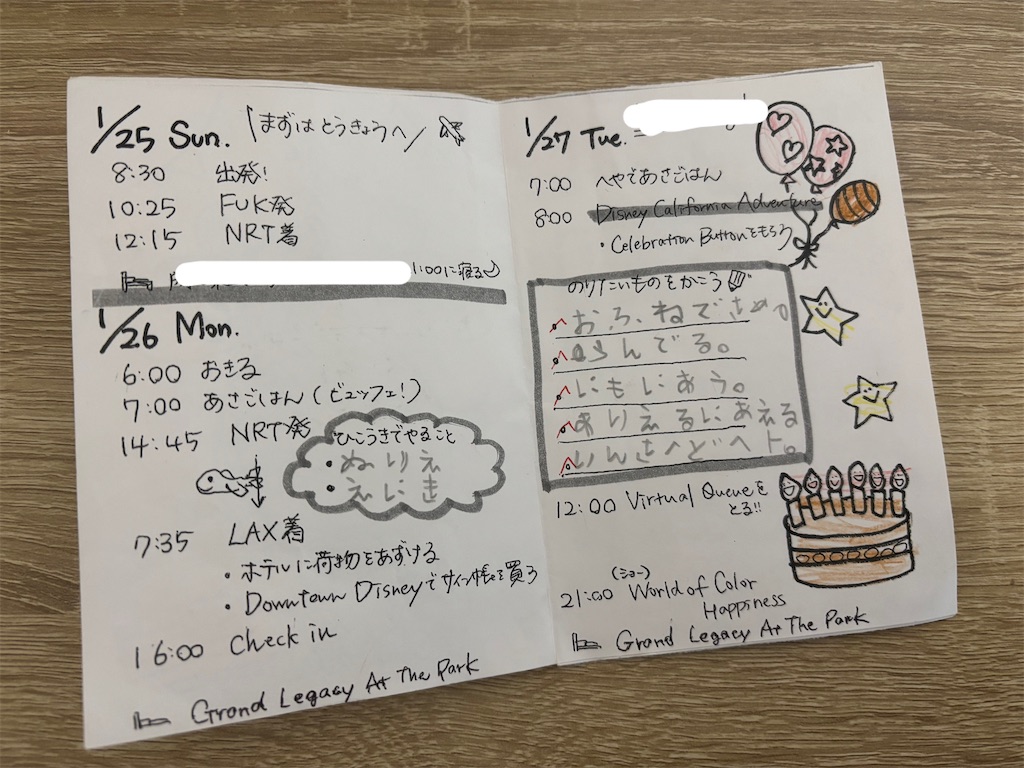 1/25 Sun. \まずはとうきょうへ/
8:30 出発!
10:25 FUK発
12:15 NRT着
1:00に寝る
1/26 Mon.
6:00 おきる
7:00 あさごはん(ビュッフェ!)
14:45 NRT発
ひこうきでやること
・ぬりえ
・えにき
7:35 LAX着
・ホテルに荷物をあずける
・Downtown Disneyでサイン帳を買う
16:00 Check in
Grand Legacy At The Park
1/27 Tue.
7:00 へやであさごはん
8:00 Disney California Adventure
・Celebration Buttonをもらう
のりたいものをかこう
にもにあう。
ありえるにあえる
12:00 Virtual Queueを
とる!!
(ショー)
21:00 World of Color
Happiness
Grand Legacy At The Park